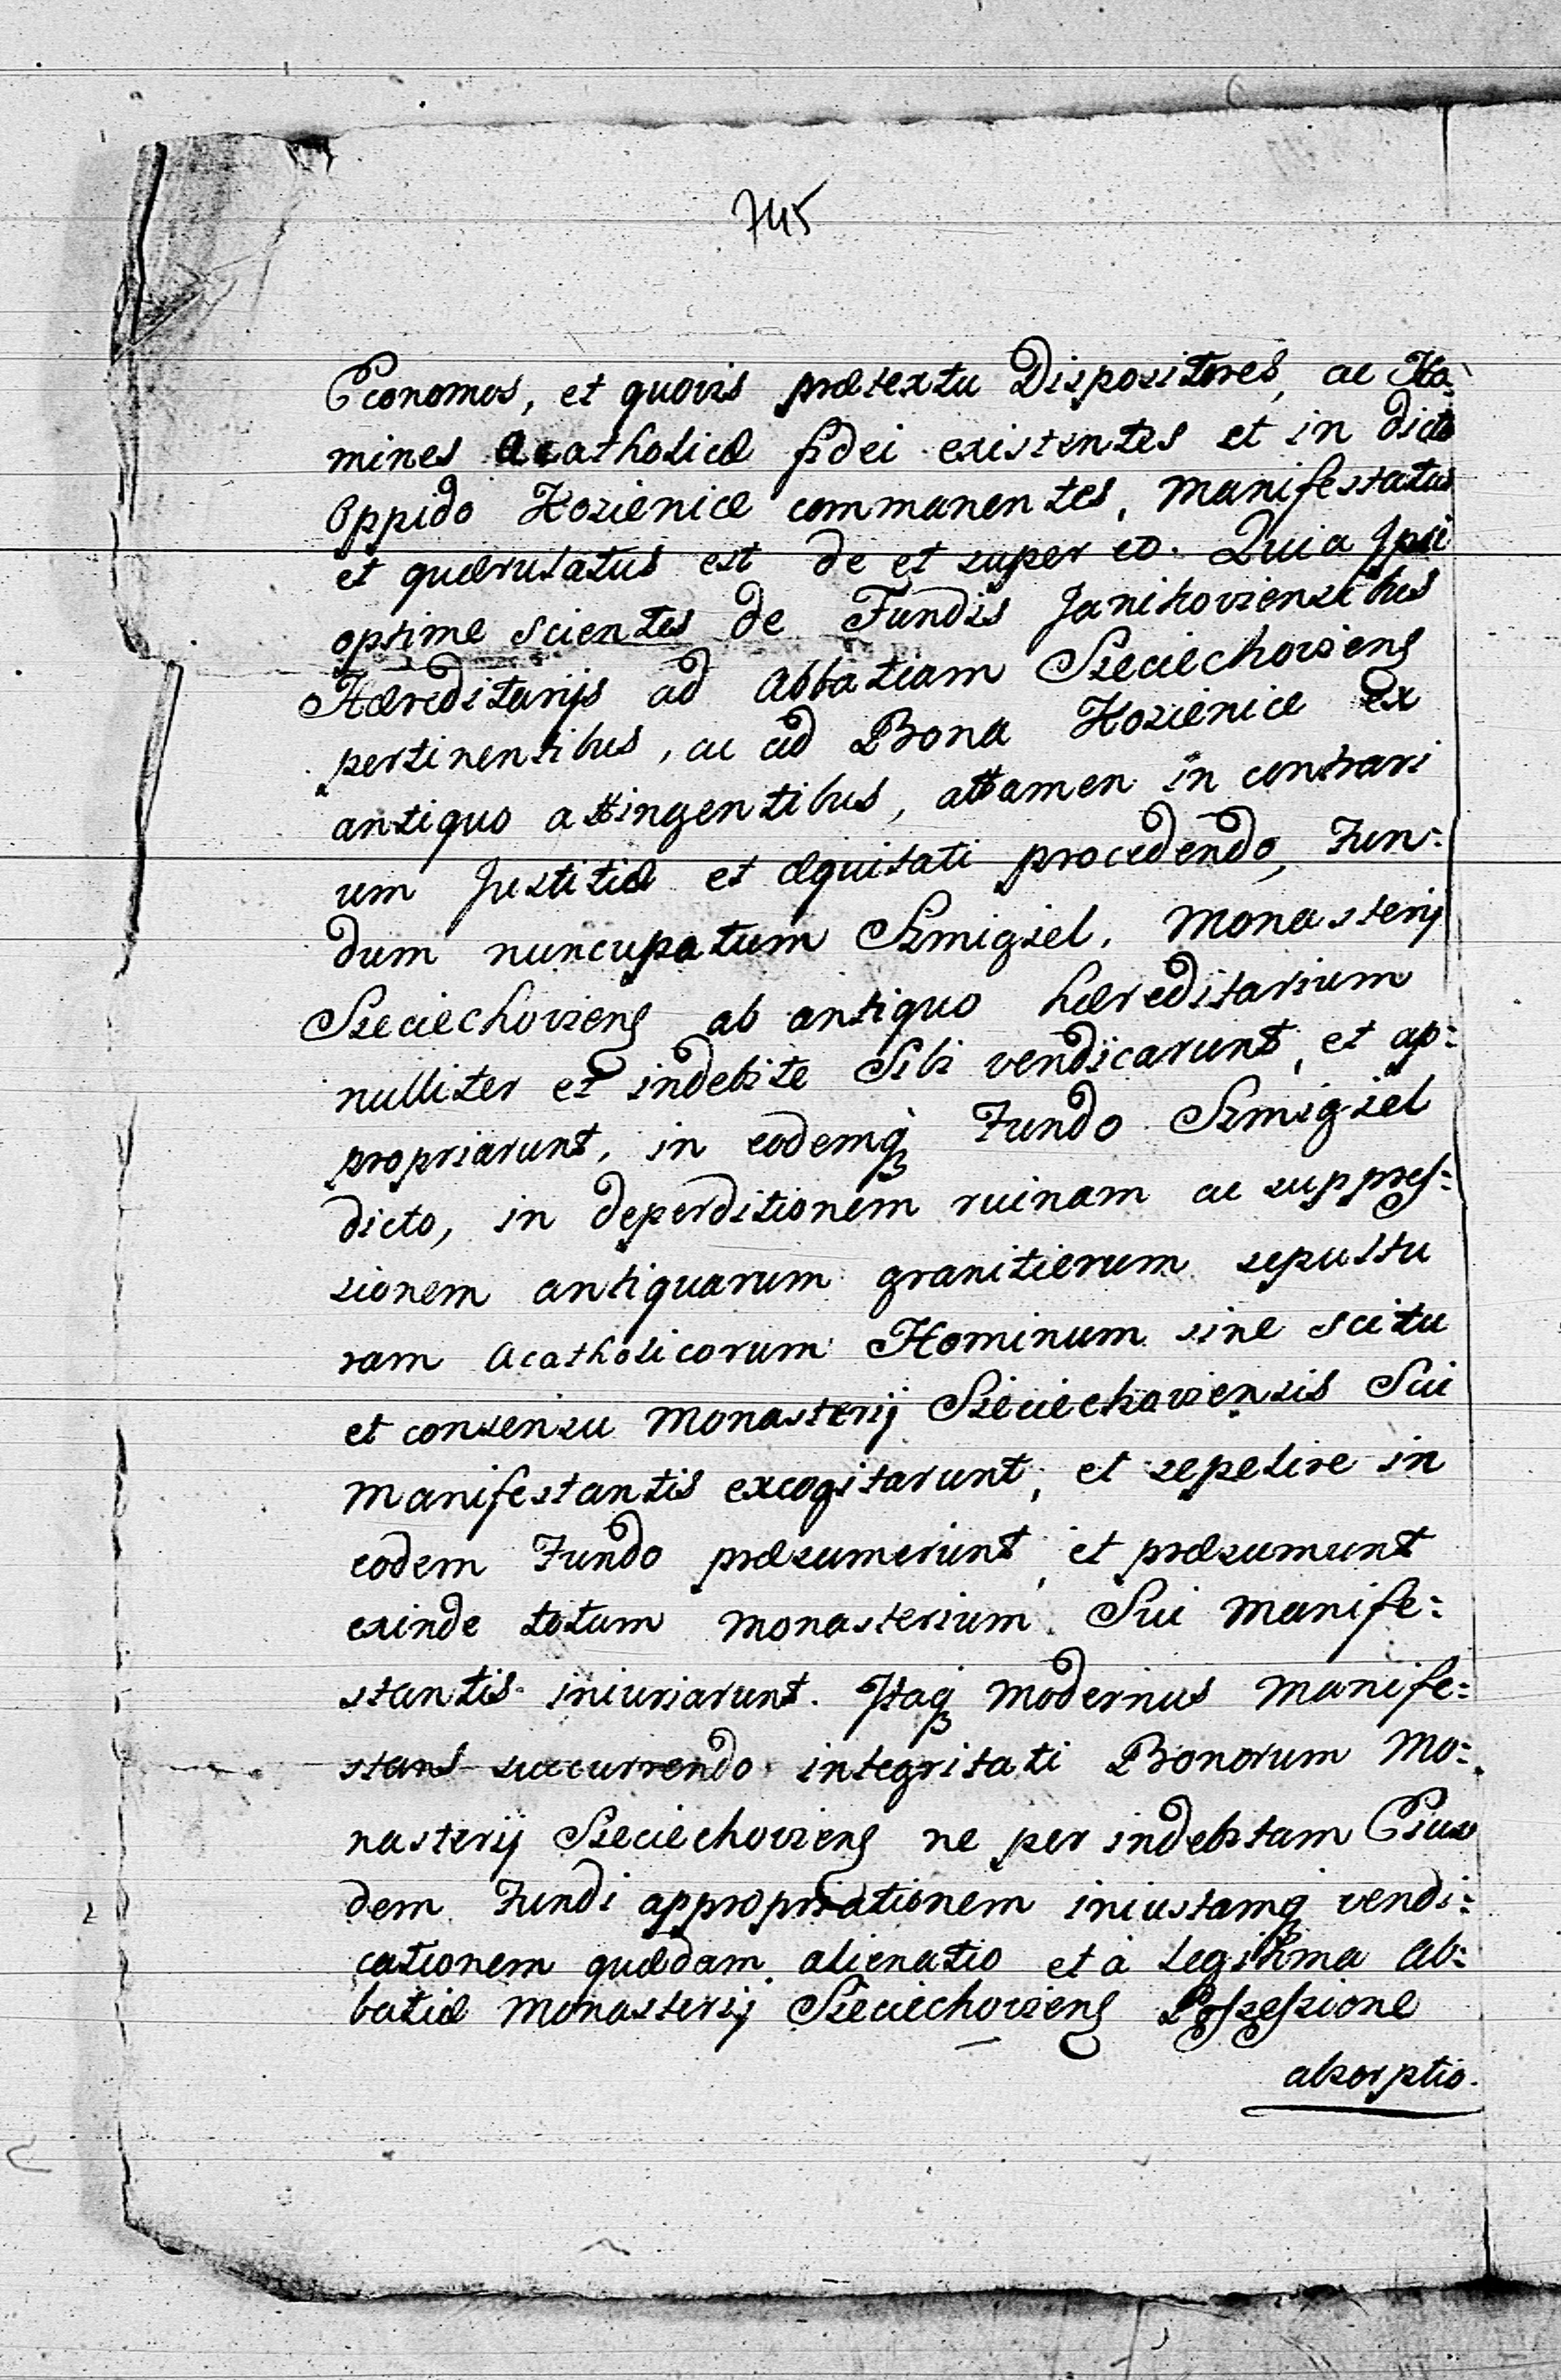 745
Œconomos, et quovis prætextu Dispositores, ac Ho-
mines acatholicæ fidei existentes et in dicto
Oppido Kozienice commanentes, manifestatus
et quærulatus est de et super eo. Quia Ipsi
optime scientes de Fundis Janikoviensibus
Hæreditarijs ad Abbatiam Szeciechoviens
pertinentibus, ac ad Bona Kozienice ex
antiquo attingentibus, attamen in contrari
um Justitiæ et æquitati procedendo, Fun:
dum nuncupatum Szmigiel, Monasterij
Szeciechoviens ab antiquo hæreditarium
nulliter et indebite Sibi vendicarunt, et ap:
propriarunt, in eodemq Fundo Szmigiel
dicto, in deperditionem ruinam ac suppres:
sionem antiquarum granitierum sepultu
ram Acatholicorum Hominum sine scitu
et consensu Monasterij Szieciechoviensis Sui
Manifestantis excogitarunt, et sepelire in
eodem Fundo præsumerunt, et præsumunt
exinde totum Monasterium Sui Manife:
stantis iniuriarunt. Itaq modernus Manife:
stans succurrendo integritati Bonorum Mo:
nasterij Szeciechoviens ne per indebitam Eius
dem Fundi appropriationem iniustamq vendi:
cationem quædam alienatio et à legitima Ab:
batiæ Monasterij Szeciechoviens Possessione
absorptio.